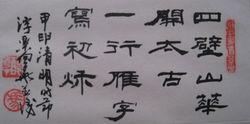 四壁山華
開太古
一行雁字
寫初秌
甲申清明時節